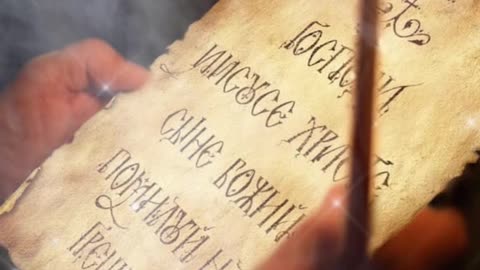 ГОСПОДИ,
ИИСУСЕ ХРИСТЕ
СЫНЕ БОЖИЙ
ПОМИЛУЙ
ГРЕШН